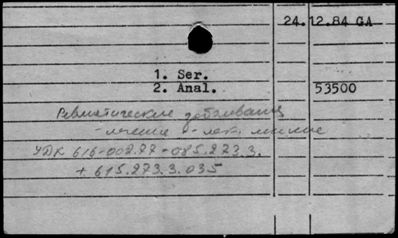 24.12.84 GA
1. Ser.
2. Anal. 53500
Ревматические заболевания
- лечение -
УДК 616-002.77-085.273.3.
+ 615.273.3.035